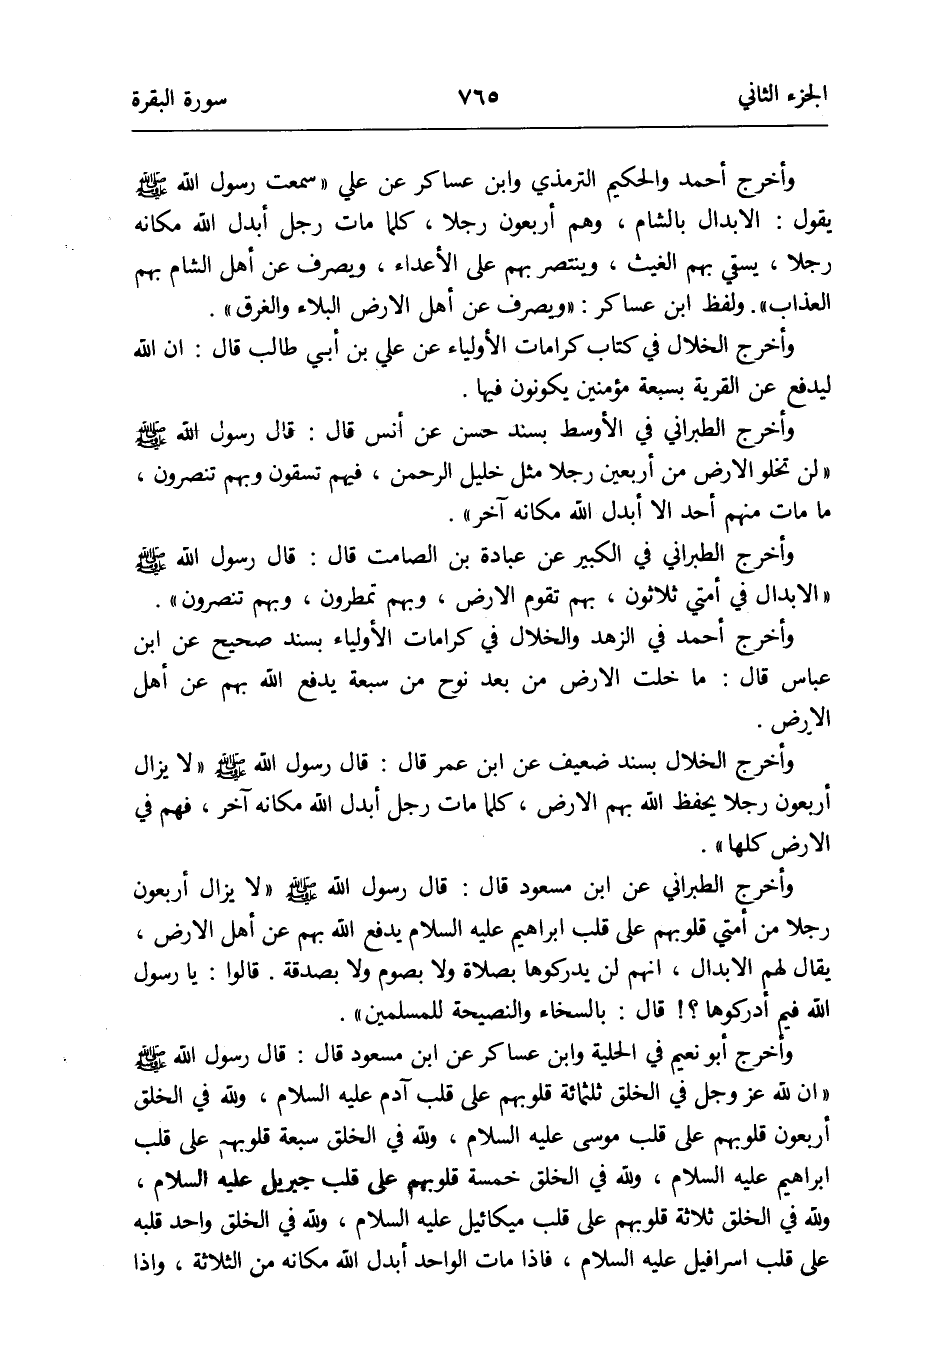 الجزء الثاني ٧٦٥ سورة البقرة
وأخرج أحمد والحكيم الترمذي وابن عساكر عن علي «سمعت رسول الله ﷺ
يقول : الابدال بالشام ، وهم أربعون رجلا ، كلما مات رجل أبدل الله مكانه
رجلا ، يسقي بهم الغيث ، وينتصر بهم على الأعداء ، ويصرف عن أهل الشام بهم
العذاب». ولفظ ابن عساكر : «ويصرف عن أهل الارض البلاء والغرق» .
وأخرج الخلال في كتاب كرامات الأولياء عن علي بن أبي طالب قال : ان الله
ليدفع عن القرية بسبعة مؤمنين يكونون فيها .
وأخرج الطبراني في الأوسط بسند حسن عن أنس قال : قال رسول الله ﷺ
«لن تخلو الارض من أربعين رجلا مثل خليل الرحمن ، فبهم تسقون وبهم تنصرون ،
ما مات منهم أحد الا أبدل الله مكانه آخر» .
وأخرج الطبراني في الكبير عن عبادة بن الصامت قال : قال رسول الله ﷺ
«الابدال في أمتي ثلاثون ، بهم تقوم الارض ، وبهم تمطرون ، وبهم تنصرون» .
وأخرج أحمد في الزهد والخلال في كرامات الأولياء بسند صحيح عن ابن
عباس قال : ما خلت الارض من بعد نوح من سبعة يدفع الله بهم عن أهل
الارض .
وأخرج الخلال بسند ضعيف عن ابن عمر قال : قال رسول الله ﷺ «لا يزال
أربعون رجلا يحفظ الله بهم الارض ، كلما مات رجل أبدل الله مكانه آخر ، فهم في
الارض كلها» .
وأخرج الطبراني عن ابن مسعود قال : قال رسول الله ﷺ «لا يزال أربعون
رجلا من أمتي قلوبهم على قلب ابراهيم عليه السلام يدفع الله بهم عن أهل الارض ،
يقال لهم الابدال ، انهم لن يدركوها بصلاة ولا بصوم ولا بصدقة . قالوا : يا رسول
الله فيم أدركوها ؟! قال : بالسخاء والنصيحة للمسلمين» .
وأخرج أبو نعيم في الحلية وابن عساكر عن ابن مسعود قال : قال رسول الله ﷺ
«ان لله عز وجل في الخلق ثلثمائة قلوبهم على قلب آدم عليه السلام ، ولله في الخلق
أربعون قلوبهم على قلب موسى عليه السلام ، ولله في الخلق سبعة قلوبهم على قلب
ابراهيم عليه السلام ، ولله في الخلق خمسة قلوبهم على قلب جبريل عليه السلام ،
ولله في الخلق ثلاثة قلوبهم على قلب ميكائيل عليه السلام ، ولله في الخلق واحد قلبه
على قلب اسرافيل عليه السلام ، فاذا مات الواحد أبدل الله مكانه من الثلاثة ، واذا